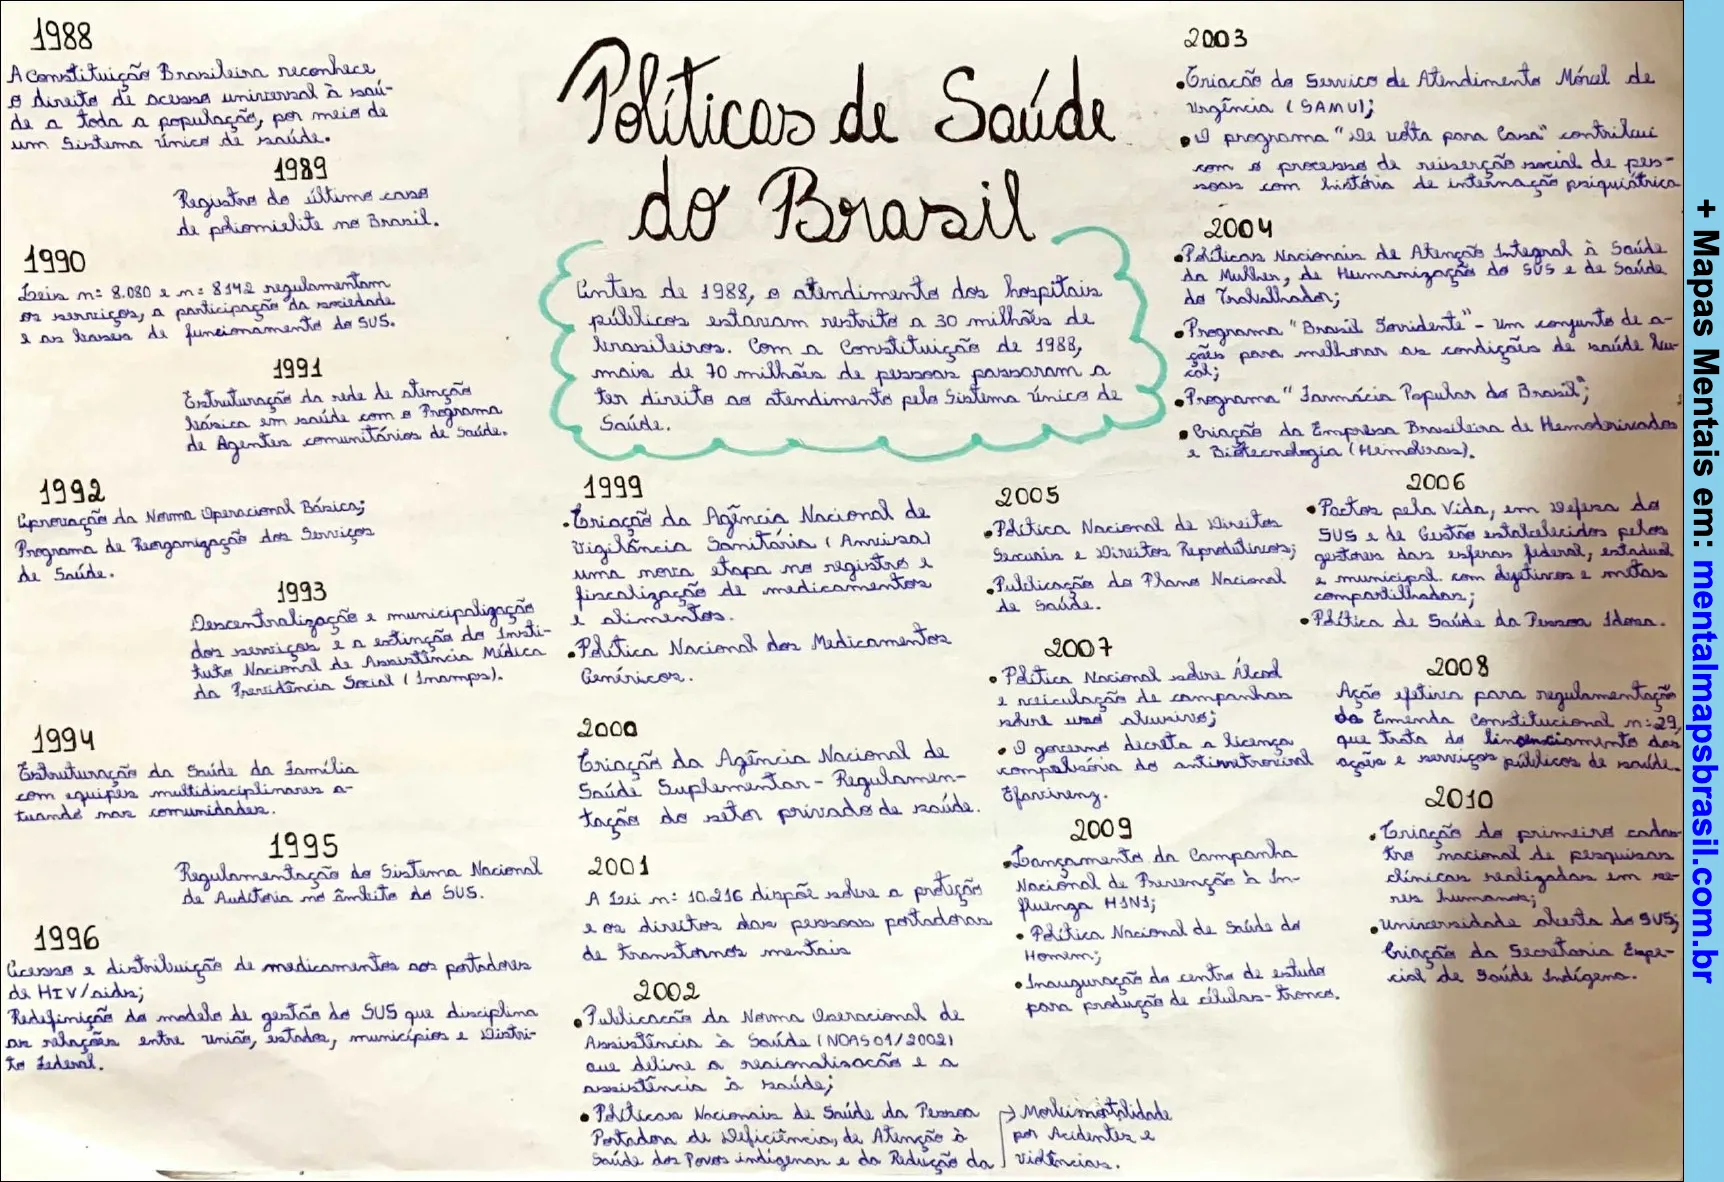 Políticas de Saúde
do Brasil
Antes de 1988, o atendimento dos hospitais
públicos estavam restrito a 30 milhões de
brasileiros. Com a Constituição de 1988,
mais de 70 milhões de pessoas passaram a
ter direito ao atendimento pelo Sistema Único de
Saúde.
1988
A Constituição Brasileira reconhece
o direito de acesso universal à saú-
de a toda a população, por meio de
um Sistema Único de saúde.
1989
Registro do último caso
de poliomielite no Brasil.
1990
Leis nº 8.080 e nº 8142 regulamentam
os serviços, a participação da sociedade
e as bases de funcionamento do SUS.
1991
Estruturação da rede de atenção
básica em saúde com o Programa
de Agentes comunitários de Saúde.
1992
Aprovação da Norma Operacional Básica;
Programa de Reorganização dos Serviços
de Saúde.
1993
Descentralização e municipalização
dos serviços e a extinção do Insti-
tuto Nacional de Assistência Médica
da Previdência Social (Inamps).
1994
Estruturação da Saúde da Família
com equipes multidisciplinares a-
tuando nas comunidades.
1995
Regulamentação do Sistema Nacional
de Auditoria no âmbito do SUS.
1996
Acesso e distribuição de medicamentos aos portadores
de HIV/aids;
Redefinição do modelo de gestão do SUS que disciplina
as relações entre união, estados, municípios e Distri-
to Federal.
1999
•Criação da Agência Nacional de
Vigilância Sanitária (Anvisa)
uma nova etapa no registro e
fiscalização de medicamentos
e alimentos.
•Política Nacional dos Medicamentos
Genéricos.
2000
Criação da Agência Nacional de
Saúde Suplementar - Regulamen-
tação do setor privado de saúde.
2001
A Lei nº 10.216 dispõe sobre a proteção
e os direitos das pessoas portadoras
de transtornos mentais
2002
•Publicação da Norma Operacional de
Assistência à Saúde (NOAS01/2002)
que define a regionalização e a
assistência à saúde;
•Políticas Nacionais de Saúde da Pessoa
Portadora de Deficiência, de Atenção à
Saúde dos Povos indígenas e da Redução da
→ Morbimortalidade
por Acidentes e
Violências.
2003
•Criação do Serviço de Atendimento Móvel de
Urgência (SAMU);
•O programa "De volta para Casa" contribui
com o processo de reiserção social de pes-
soas com história de internação psiquiátrica
2004
•Políticas Nacionais de Atenção Integral à Saúde
da Mulher, de Humanização do SUS e de Saúde
do Trabalhador;
•Programa "Brasil Sorridente" - Um conjunto de a-
ções para melhorar as condições de saúde bu-
cal;
•Programa "Farmácia Popular do Brasil";
•Criação da Empresa Brasileira de Hemoderivados
e Biotecnologia (Hemobras).
2005
•Política Nacional de Direitos
Sexuais e Direitos Reprodutivos;
•Publicação do Plano Nacional
de Saúde.
2006
•Pactos pela Vida, em Defesa do
SUS e de Gestão estabelecidos pelos
gestores das esferas federal, estadual
e municipal com objetivos e metas
compartilhadas;
•Política de Saúde da Pessoa Idosa.
2007
•Política Nacional sobre Álcool
e veiculação de campanhas
sobre uso abusivo;
•O governo decreta a licença
compulsória do antirretroviral
Efavirenz.
2008
Ação efetiva para regulamentação
da Emenda Constitucional nº 29,
que trata do financiamento das
ações e serviços públicos de saúde.
2009
•Lançamento da Campanha
Nacional de Prevenção à In-
fluenza H1N1;
•Política Nacional de Saúde do
Homem;
•Inauguração do centro de estudo
para produção de células-tronco.
2010
•Criação do primeiro cadas-
tro nacional de pesquisas
clínicas realizadas em se-
res humanos;
•Universidade aberta do SUS;
Criação da Secretaria Espe-
cial de Saúde Indígena.
+ Mapas Mentais em: mentalmapsbrasil.com.br